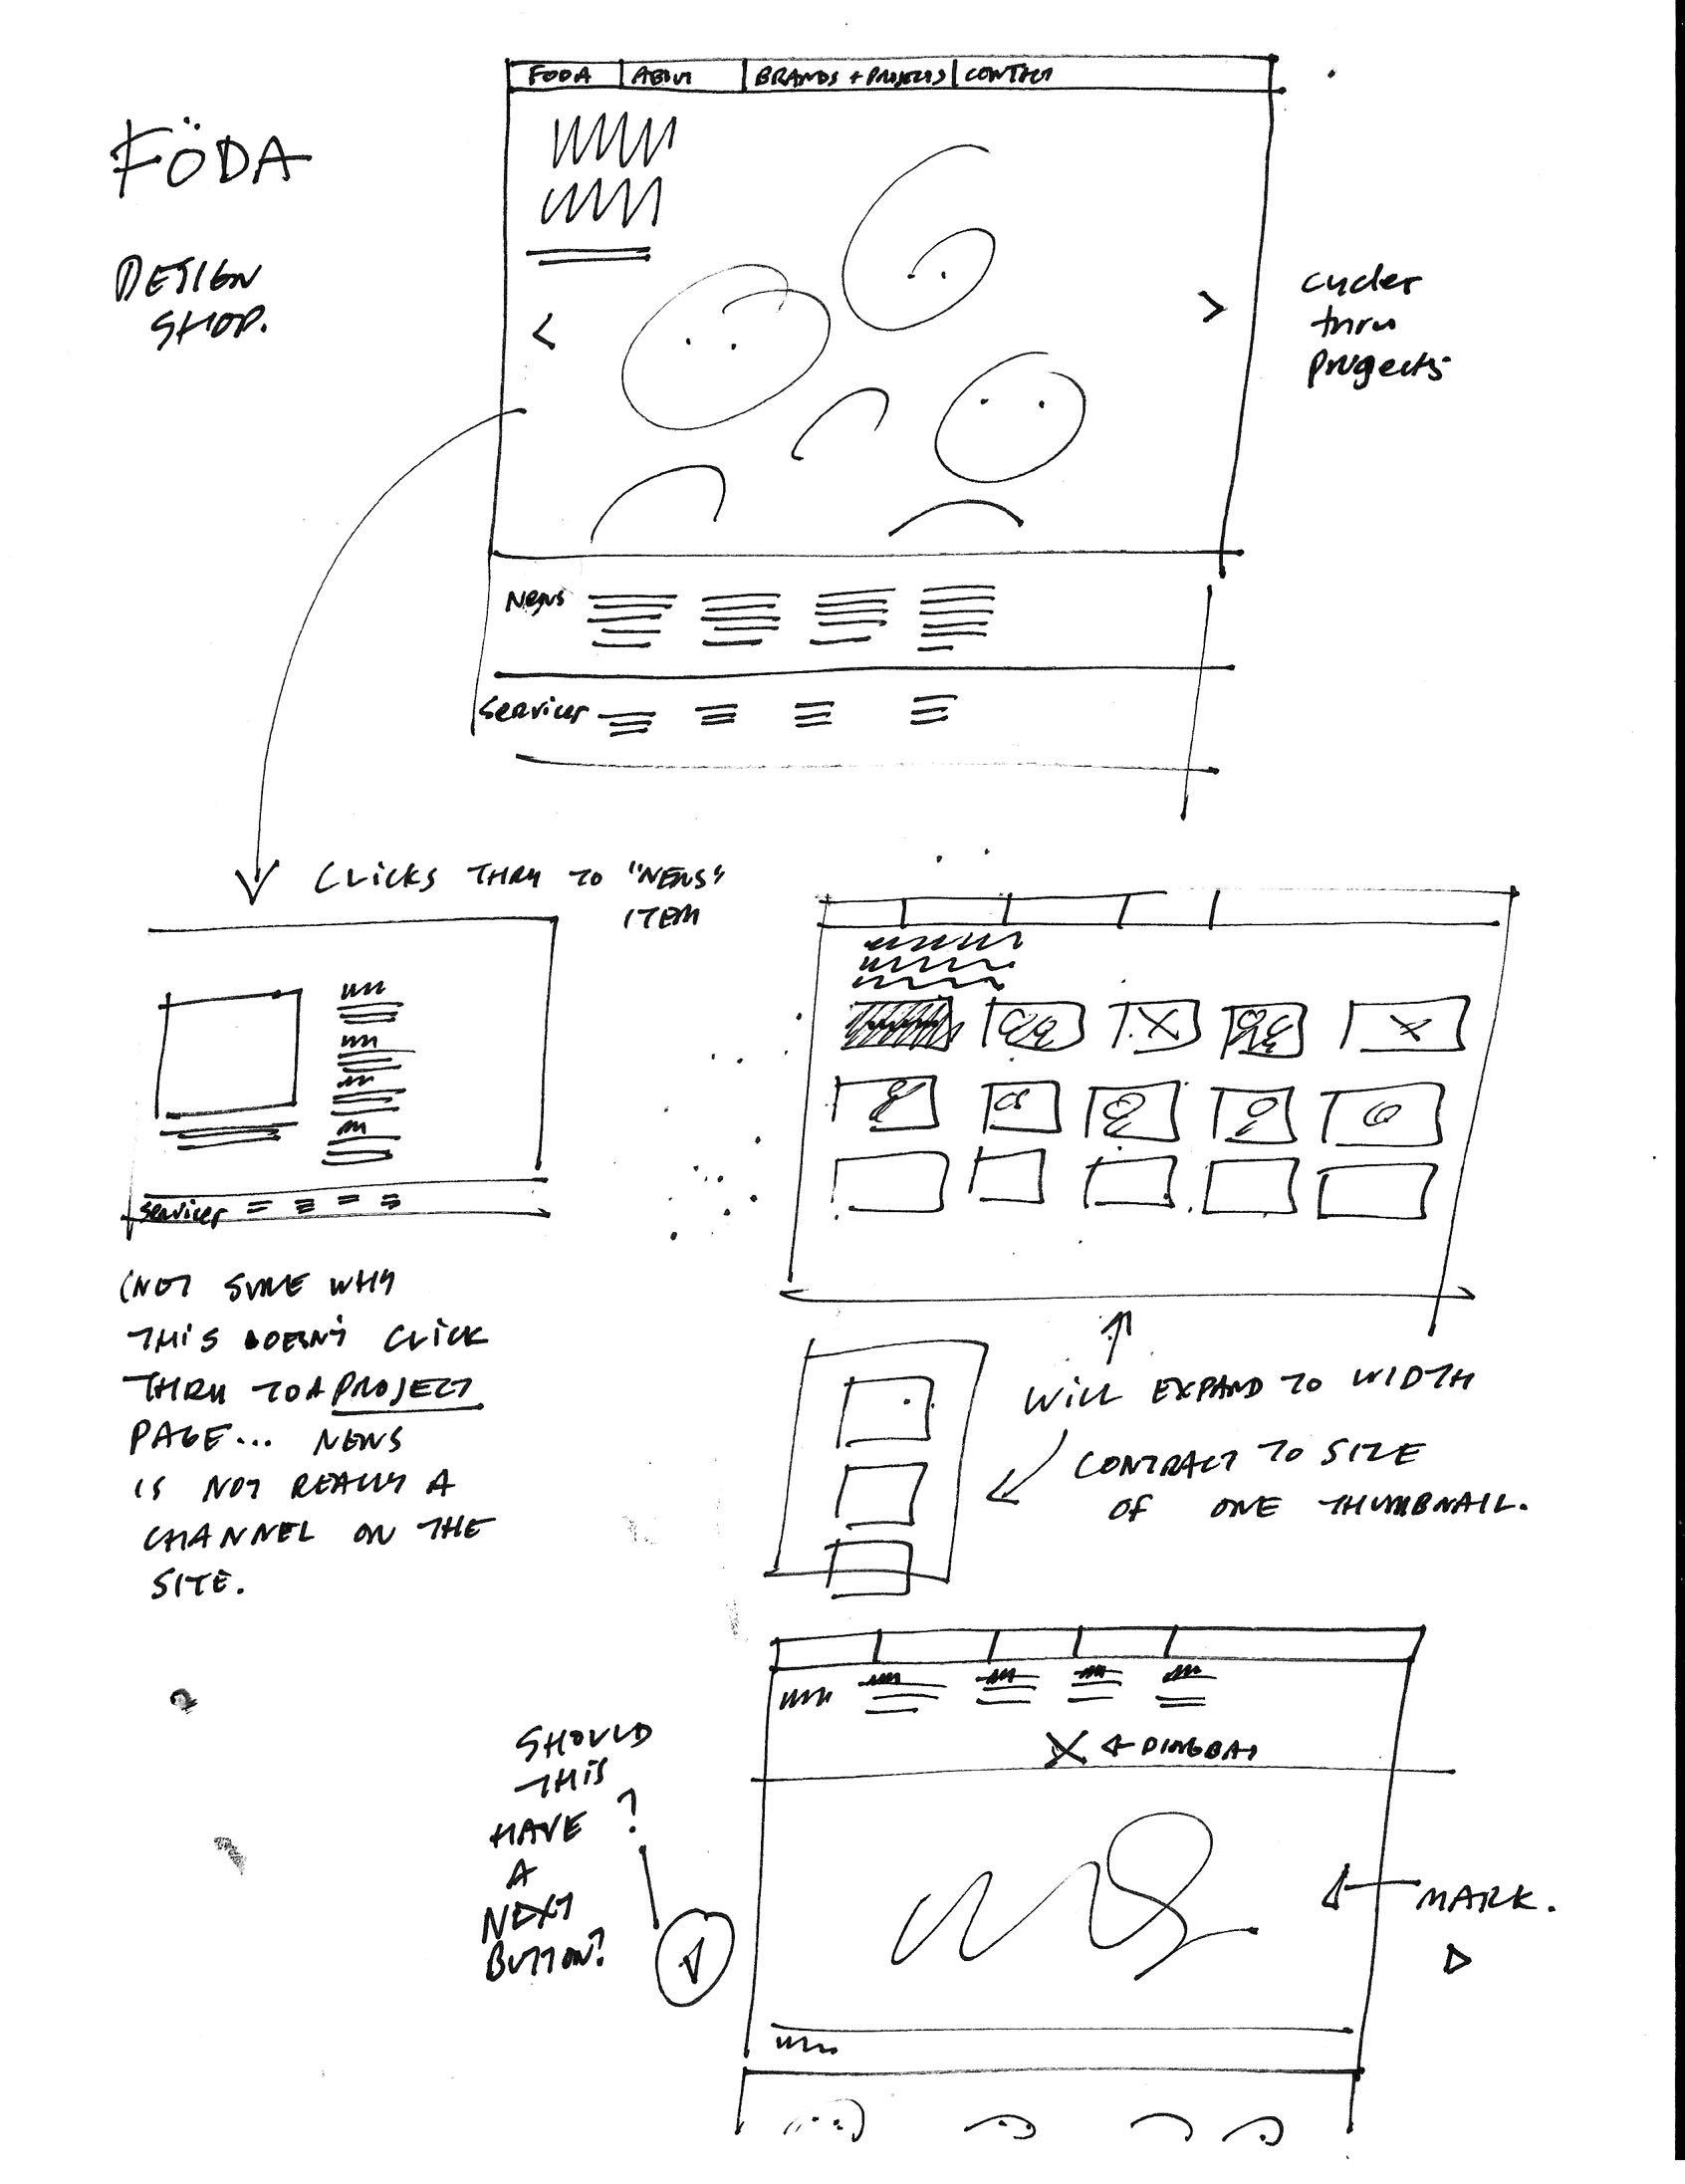 FODA ABOUT BRANDS + PROJECTS CONTACT
FÖDA
DESIGN
SHOP.
cycles
thru
projects
News
Services
CLICKS THRU TO "NEWS"
ITEM
Services
(NOT SURE WHY
THIS DOESN'T CLICK
THRU TO A PROJECT
PAGE... NEWS
IS NOT REALLY A
CHANNEL ON THE
SITE.
WILL EXPAND TO WIDTH
CONTRACT TO SIZE
OF ONE THUMBNAIL.
DINGBAT
SHOULD
THIS
HAVE ?
A
NEXT
BUTTON?
MARK.